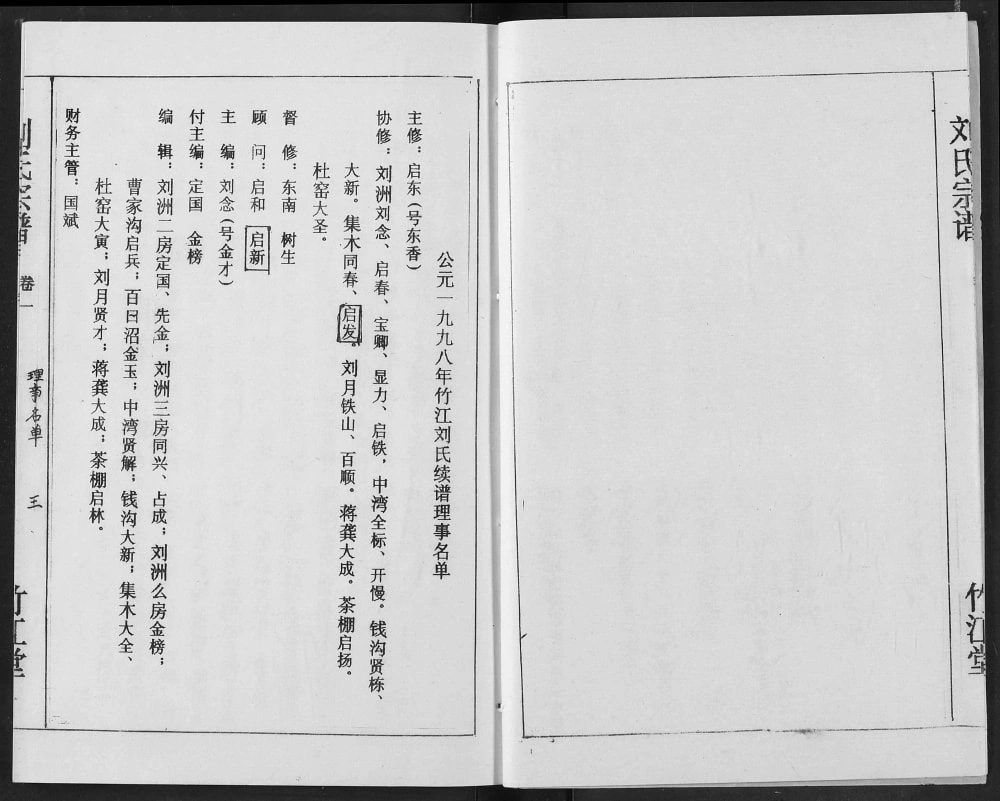 刘氏宗谱
竹江堂
公元一九九八年竹江刘氏续谱理事名单
主修：启东(号东香)
协修：刘洲刘念、启春、宝卿、显力、启铁，中湾全标、开慢。钱沟贤栋、
大新。集木同春、启发。刘月铁山、百顺。蒋龚大成。茶棚启扬。
杜窑大圣。
督　修：东南　树生
顾　问：启和　启新
主　编：刘念(号金才)
付主编：定国　金榜
编　辑：刘洲二房定国、先金；刘洲三房同兴、占成；刘洲么房金榜；
曹家沟启兵；百日沼金玉；中湾贤解；钱沟大新；集木大全、
杜窑大寅；刘月贤才；蒋龚大成；茶棚启林。
财务主管：国斌
刘氏宗谱
卷一
理事名单
王
竹江堂